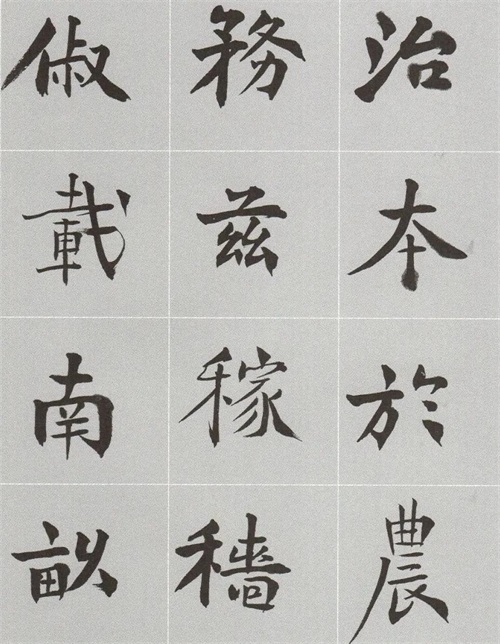 治本於農
務茲稼穡
俶載南畝